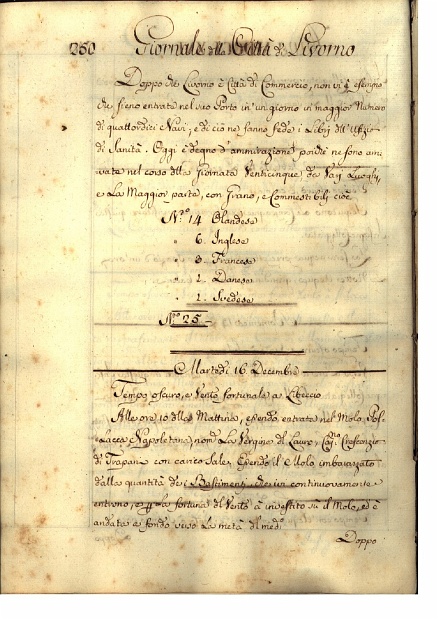 260 Giornale della Città di Livorno
Doppo che Livorno è Città di Commercio, non vi è esempio
che sieno entrate nel suo Porto in un giorno in maggior Numero
di quattordici Navi, e di ciò ne fanno fede i Libri dell'Ufizio
di Sanità. Oggi è degno d'ammirazione poichè ne sono arri
vate nel corso della giornata Venticinque da Varj Luoghi,
e La Maggior parte, con Grano, e Commestibili cioè
N.º 14 Olandese
" 6. Inglese
" 3. Francese
" 1. Danese
" 1. Svedese
N.º 25 -
Martedì 16 Decembre
Tempo oscuro, e Vento fortunale a Libeccio
Alle ore 10 della Mattina, essendo entrata nel Molo,
Napoletana, La Vergine di Lauro, Cap.no Crescenzio
di Trapani con carico Sale, Essendo il Molo imbarazzato
dalla quantità dei Bastimenti, che in continuovamente
entrono, e La fortuna del Vento à investito su il Molo, ed è
andata a fondo verso La metà del med.º
Doppo